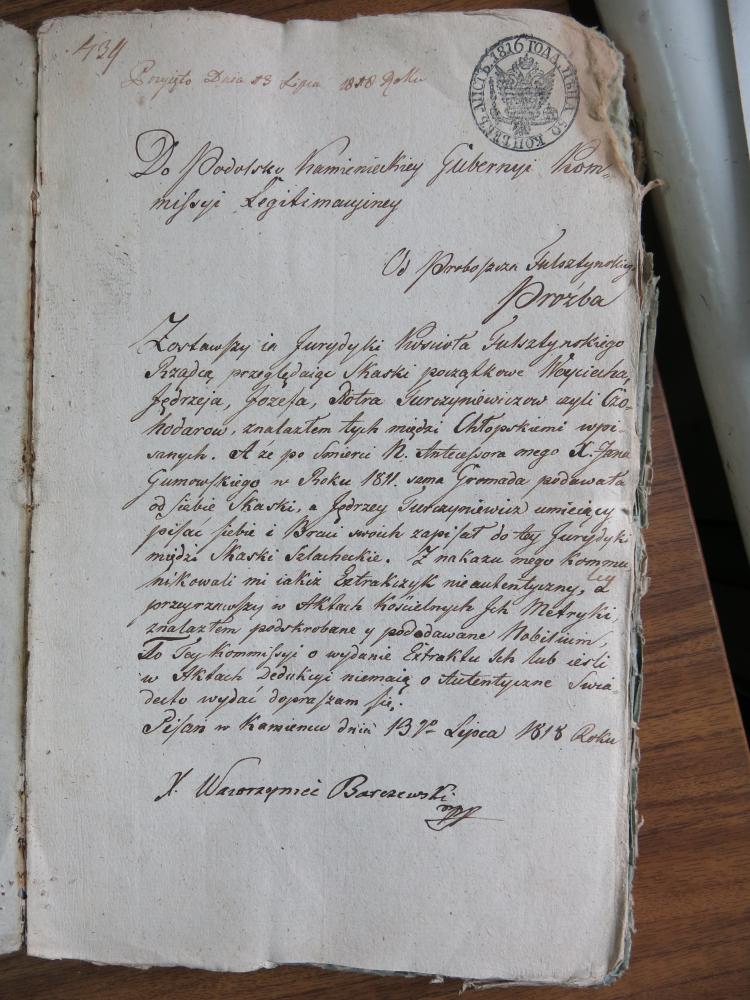 434
Przyięto Dnia 13 Lipca 1818 Roku
ЛИСТЪ 1816 ГОДА, ЦѢНА 50 КОПѢЕКЪ
Do Podolsko Kamienieckiey Gubernyi Kom=
missyi Legitimacyiney
Od Proboszcza Fulsztynskiego
Proźba
Zostawszy ia Jurydyki Kościoła Fulsztynskiego
Rządcą, przeglądaiąc Skaski początkowe Woyciecha,
Jędrzeja, Jozefa, Piotra Turczyniewiczow czyli Czo-
hodarow, znalazłem tych między Chłopskiemi wpi-
sanych. A że po śmierci N. Antecessora mego X. Jana
Gumowskiego w Roku 1811. sama Gromada podawała
od siebie Skaski, a Jędrzey Turczyniewicz umieiący
pisać siebie i Braci swoich zapisał do tey Jurydyki
między Skaski Szlacheckie. Z nakazu mego kommu
nikowali mi iakiś Extrakcżyk nieautentyczny, a
przeyrzawszy w Aktach Kościelnych Ich Metryki,
znalazłem podskrobane y pododawane Nobilium,
To Tey Kommissyi o wydanie Extraktu Ich lub ieśli
w Aktach Dedukcyi niemaią o Autentyczne Swia-
dectwo wydać dopraszam się.
Pisan w Kamieńcu dnia 13go Lipca 1818 Roku
X. Wawrzyniec Barczewski
mpp